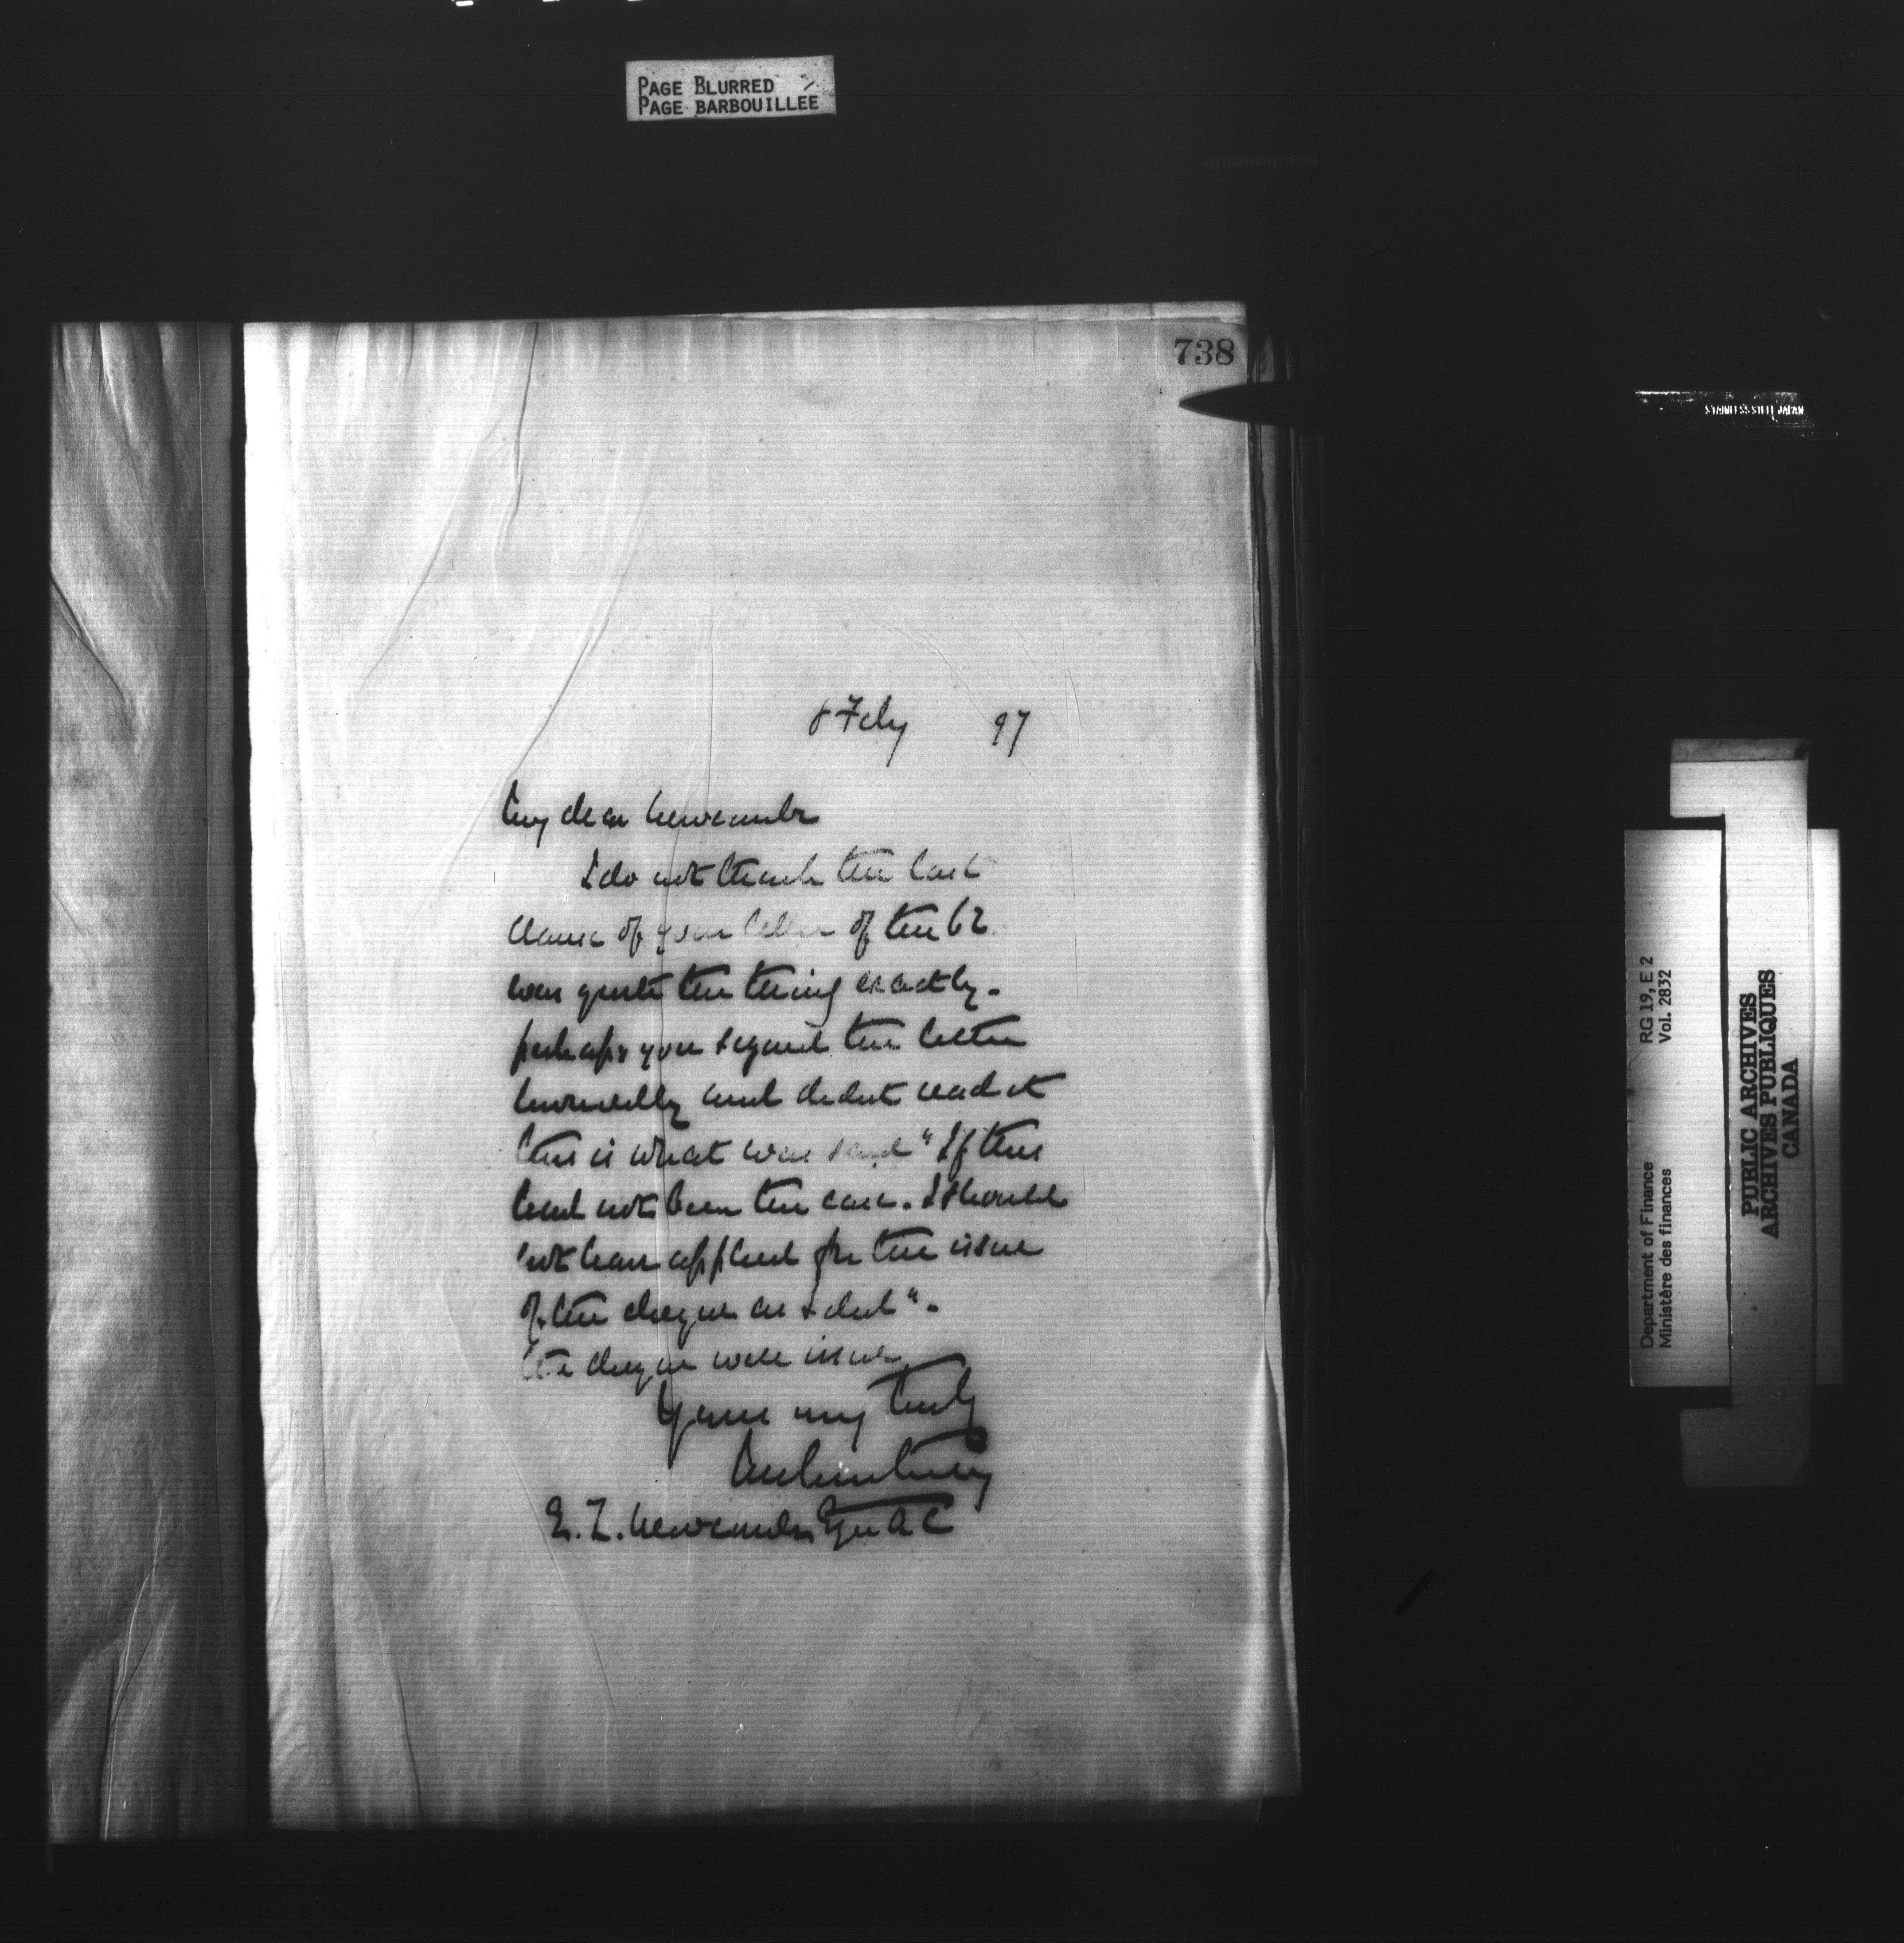 PAGE BLURRED
PAGE BARBOUILLEE
738
8 Feby 97
My dear Newcombe
I do not think the last
clause of your letter of the 6th
was quite the thing exactly.
perhaps you signed the letter
hurriedly and didnt read it
this is what was said "If this
had not been the case. I should
not have applied for the issue
of the cheque as I did".
The cheque will issue.
Yours very truly
E. L. Newcombe Esqr Q C
STAINLESS STEEL JAPAN
Department of Finance RG 19, E 2
Ministère des finances Vol. 2832
PUBLIC ARCHIVES
ARCHIVES PUBLIQUES
CANADA